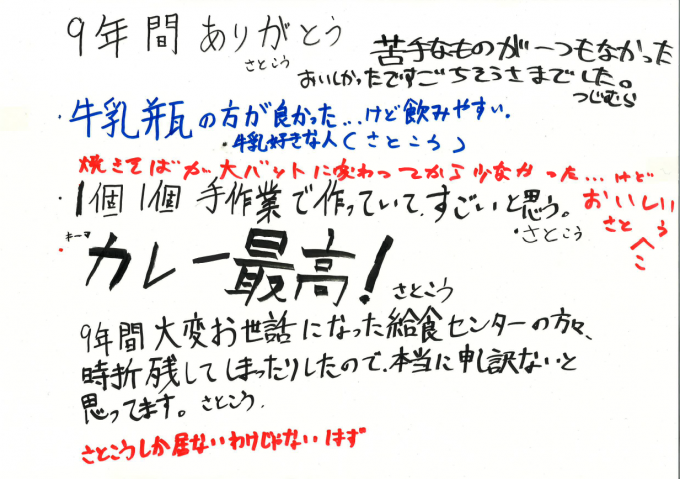 9年間ありがとう
さとこう
苦手なものが一つもなかった
おいしかったですごちそうさまでした。
つじむら
・牛乳瓶の方が良かった...けど飲みやすい。
・牛乳好きな人(さとこう)
焼きそばが大バットに変わってから少なかった...けど
おいしい
さとこう
・1個1個手作業で作っていて、すごいと思う。
・さとこう
・キーマ
カレー最高!
さとこう
9年間大変お世話になった給食センターの方々、
時折残してしまったりしたので、本当に申し訳ないと
思ってます。さとこう.
さとこうしか居ないわけじゃないはず